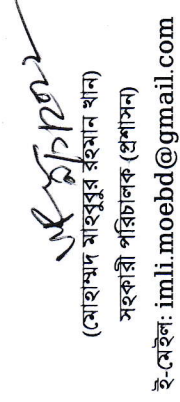 (মোহাম্মদ মাহবুবুর রহমান খান)
সহকারী পরিচালক (প্রশাসন)
ই-মেইল: imli.moebd@gmail.com